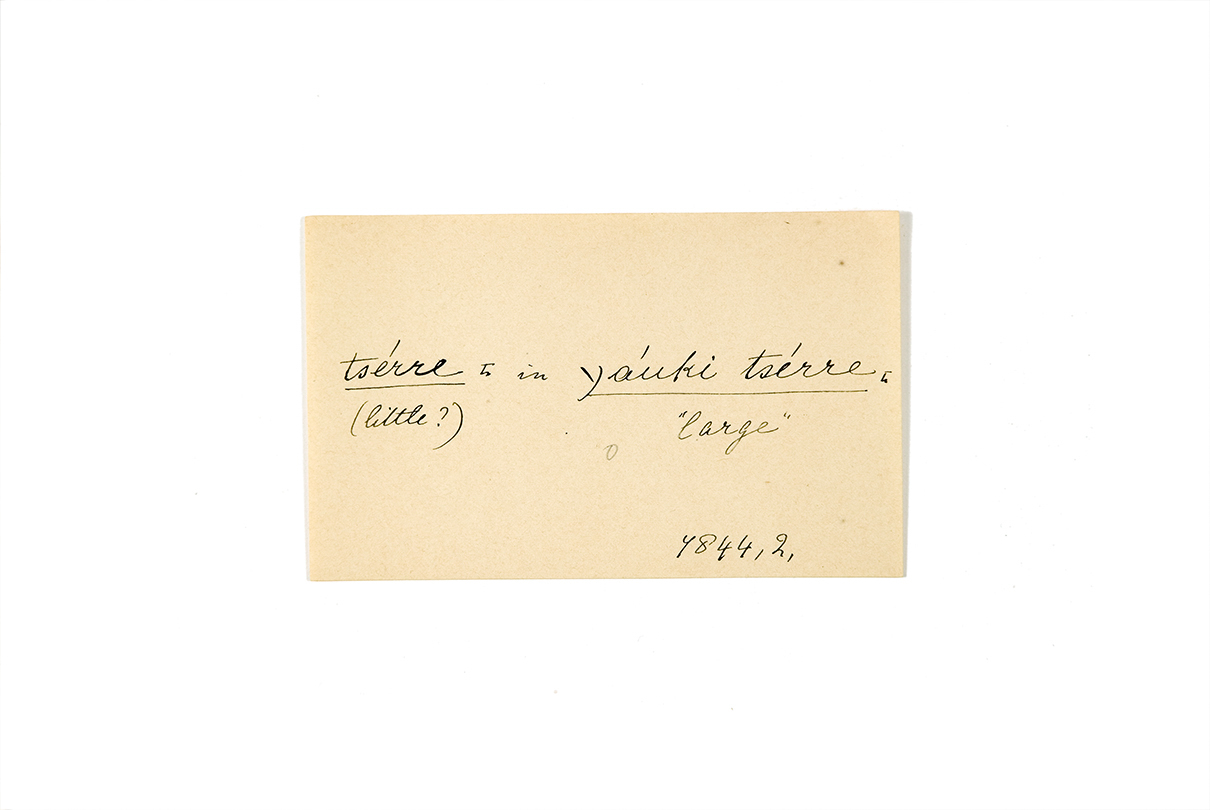 tsérre ꜩ in )áuki tsérre.
(little?) "large"
7844, 2,